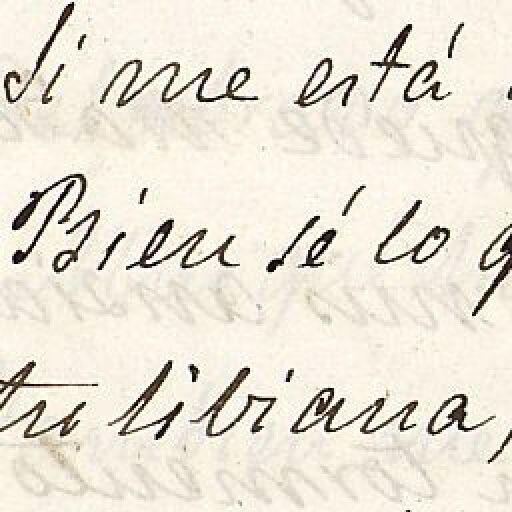 Si me está
Bien sé lo q
tu libiana,